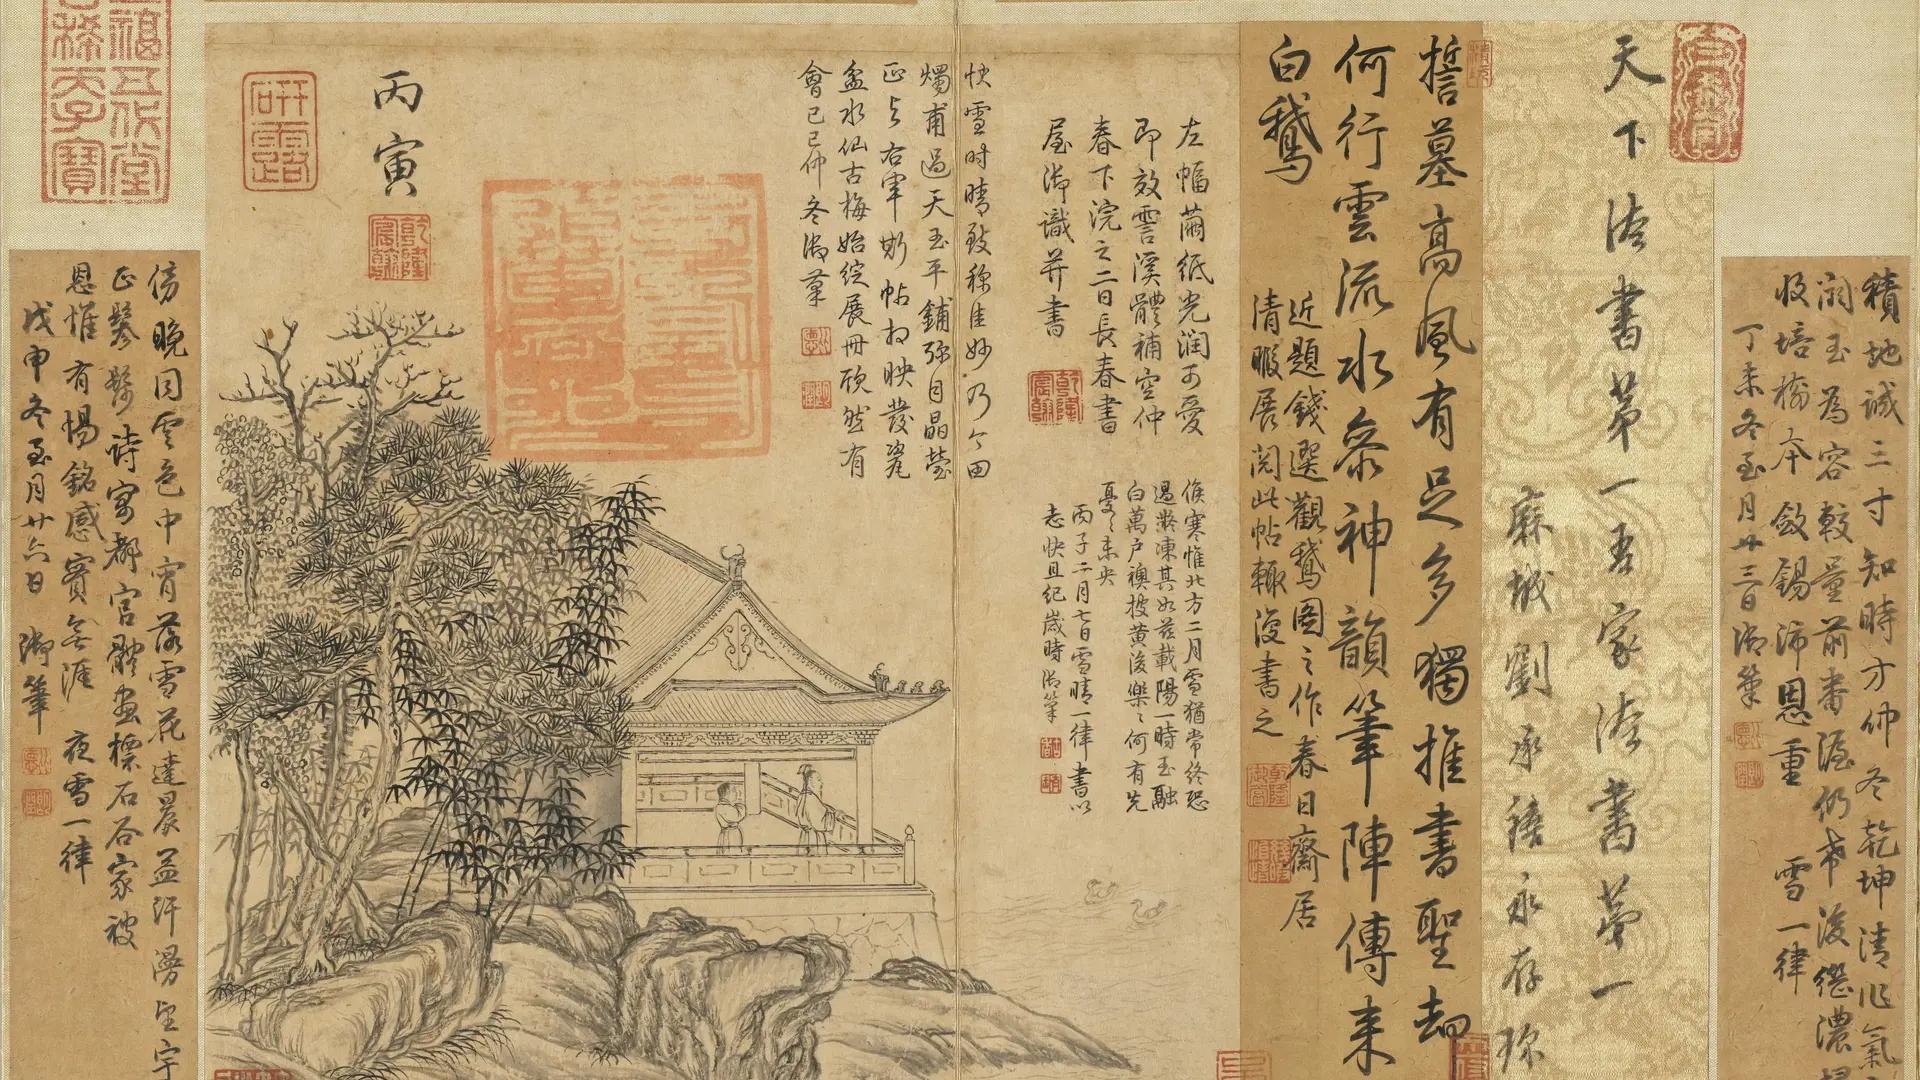 積地誠三寸知時方仲冬乾坤清兆氣
潤玉為容較量前番渥仍希後繼濃
收培檢本斂錫沛恩重
雪一律
丁未冬至月廿三日御筆
天下法書第一吾家法書第一
麻城劉承禧永存珍
誓墓高風有足多獨推書聖却
何行雲流水參神韻筆陣傳來
白鵝
近題錢選觀鵝圖之作春日齋居
清暇展閱此帖輒復書之
左幅繭紙光潤可愛
即效雲溪體補空仲
春下浣之二日長春書
屋御識并書
候寒惟北方二月雪猶常終恐
過凝凍其如茲載陽一時玉融
白萬戶襖披黃後樂樂何有先
憂憂未央
丙子二月七日雪晴一律書以
志快且紀歲時御筆
快雪時晴致稱佳妙乃今田
燭甫過天玉平鋪彌目晶瑩
正與右軍斯帖相映發瓷
盆水仙古梅始綻展冊欣然有
會己巳仲冬御筆
丙寅
乾隆宸翰
研露
五福五代堂
古稀天子寶
傍晚同雲色中宵落雪花達晨益
正
恩惟有惕銘感實無涯 夜雪一律
戊申冬至月廿六日 御筆